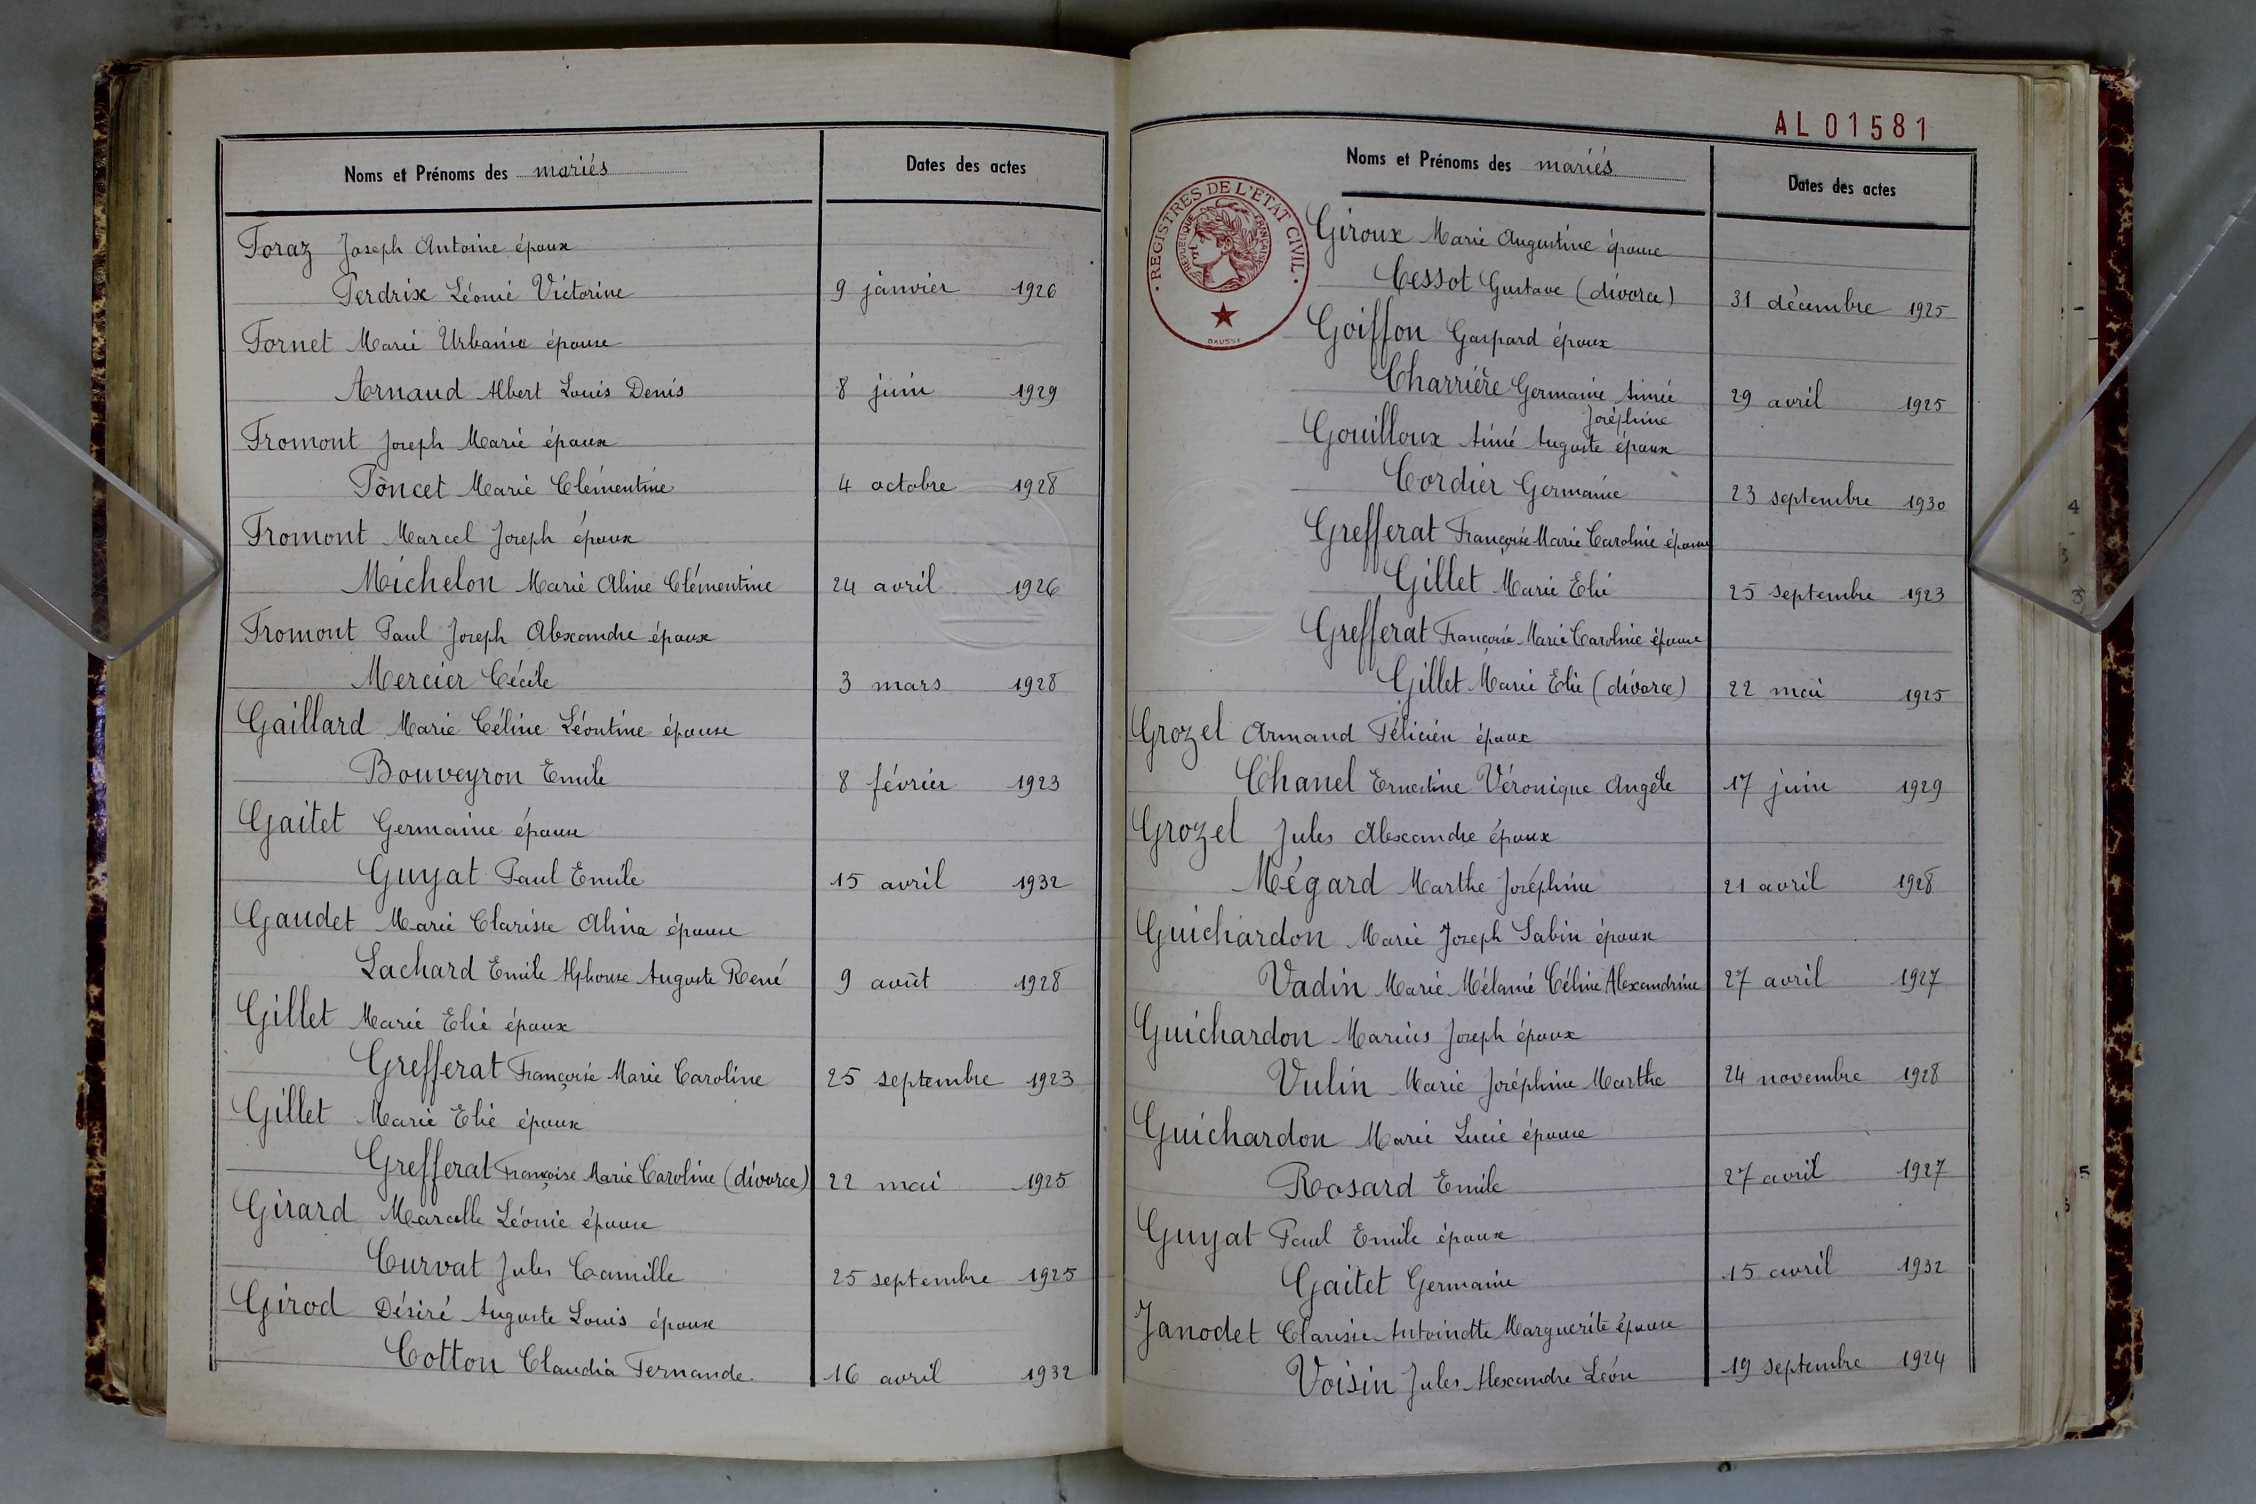 Noms et Prénoms des mariés
Dates des actes
Foraz Joseph Antoine époux
Perdrix Léonie Victorine 9 janvier 1926
Fornet Marie Urbanie épouse
Arnaud Albert Louis Denis 8 juin 1929
Fromont Joseph Marie époux
Poncet Marie Clémentine 4 octobre 1928
Fromont Marcel Joseph époux
Michelon Marie Aline Clémentine 24 avril 1926
Fromont Paul Joseph Alexandre époux
Mercier Cécile 3 mars 1928
Gaillard Marie Céline Léontine épouse
Bouveyron Emile 8 février 1923
Gaitet Germaine épouse
Guyat Paul Emile 15 avril 1932
Gaudet Marie Clarisse Alina épouse
Lachard Emile Alphonse Auguste René 9 août 1928
Gillet Marie Elie époux
Grefferat Françoise Marie Caroline 25 septembre 1923
Gillet Marie Elie époux
Grefferat Françoise Marie Caroline (divorce) 22 mai 1925
Girard Marcelle Léonie épouse
Curvat Jules Camille 25 septembre 1925
Girod Désiré Auguste Louis époux
Cotton Claudia Fernande 16 avril 1932
AL01581
Noms et Prénoms des mariés
Dates des actes
REGISTRES DE L'ETAT CIVIL
REPUBLIQUE FRANÇAISE
Giroux Marie Augustine épouse
Cessot Gustave (divorce) 31 décembre 1925
Goiffon Gaspard époux
Charrière Germaine Aimée 29 avril 1925
Joséphine
Gouilloux Aimé Auguste époux
Cordier Germaine 23 septembre 1930
Grefferat Françoise Marie Caroline épouse
Gillet Marie Elie 25 septembre 1923
Grefferat Françoise Marie Caroline épouse
Gillet Marie Elie (divorce) 22 mai 1925
Grozel Armand Félicien époux
Chanel Ernestine Véronique Angèle 17 juin 1929
Grozel Jules Alexandre époux
Mégard Marthe Joséphine 21 avril 1928
Guichardon Marie Joseph Sabin époux
Vadin Marie Mélanie Céline Alexandrine 27 avril 1927
Guichardon Marius Joseph époux
Vulin Marie Joséphine Marthe 24 novembre 1928
Guichardon Marie Lucie épouse
Rosard Emile 27 avril 1927
Guyat Paul Emile époux
Gaitet Germaine 15 avril 1932
Janodet Clarisse Antoinette Marguerite épouse
Voisin Jules Alexandre Léon 19 septembre 1924